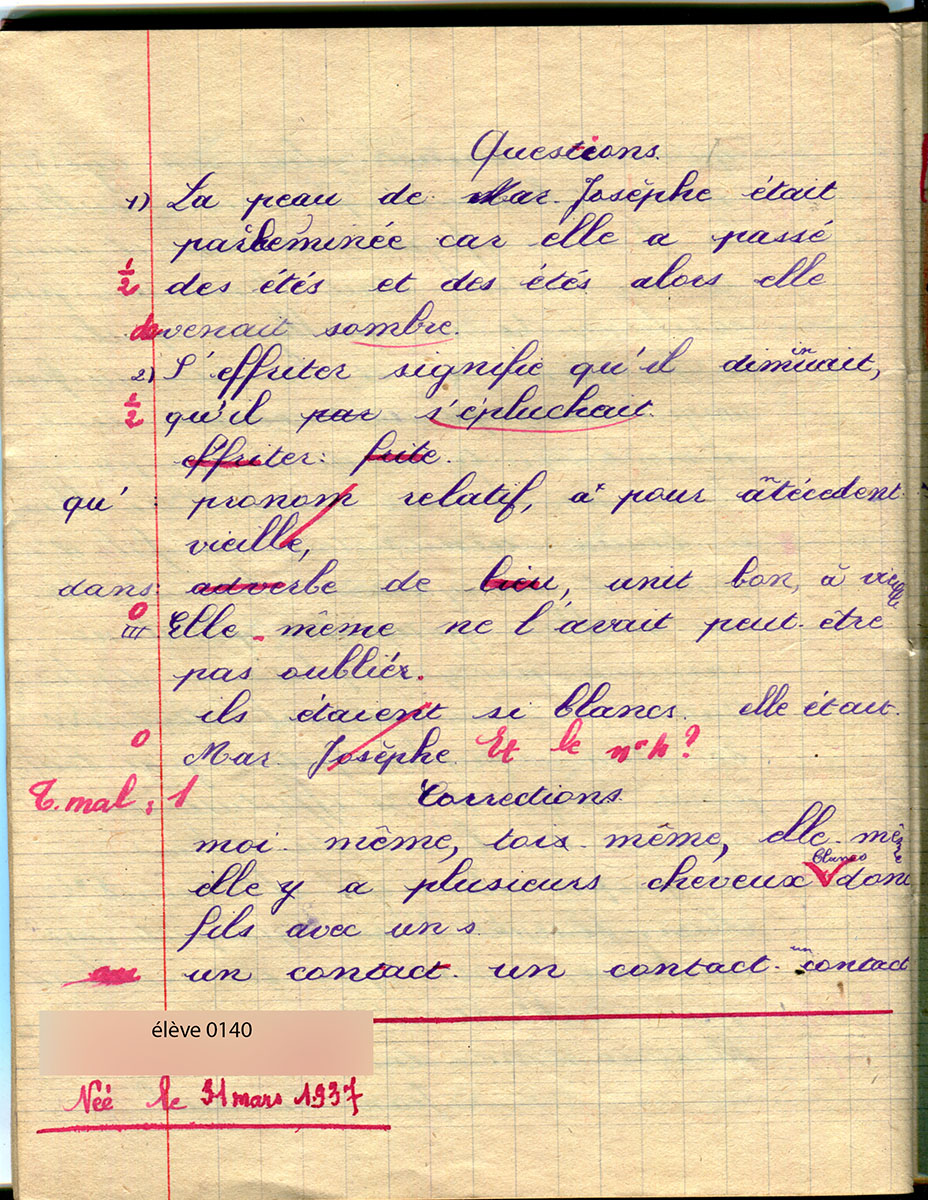 Questions.
1) La peau de Mar-Josèphe était
parcheminée car elle a passé
1/2 des étés et des étés alors elle
devenait sombre.
2) S'effriter signifie qu'il diminuait,
1/2 qu'il par s'épluchait.
effriter : frite.
qu' : pronom relatif, a pour antécédent
vieille,
dans : adverbe de lieu, unit bon, à
0
III Elle-même ne l'avait peut-être
pas oubliér.
ils étaient si blancs. elle était.
0 Mar-Josèphe Et le n° 4?
T. mal : 1 Corrections
moi-même, toix-même, elle-même
blancs
elle y a plusieurs cheveux donc
fils avec un s.
un contact. un contact. un contact
élève 0140
Née le 31 mars 1937